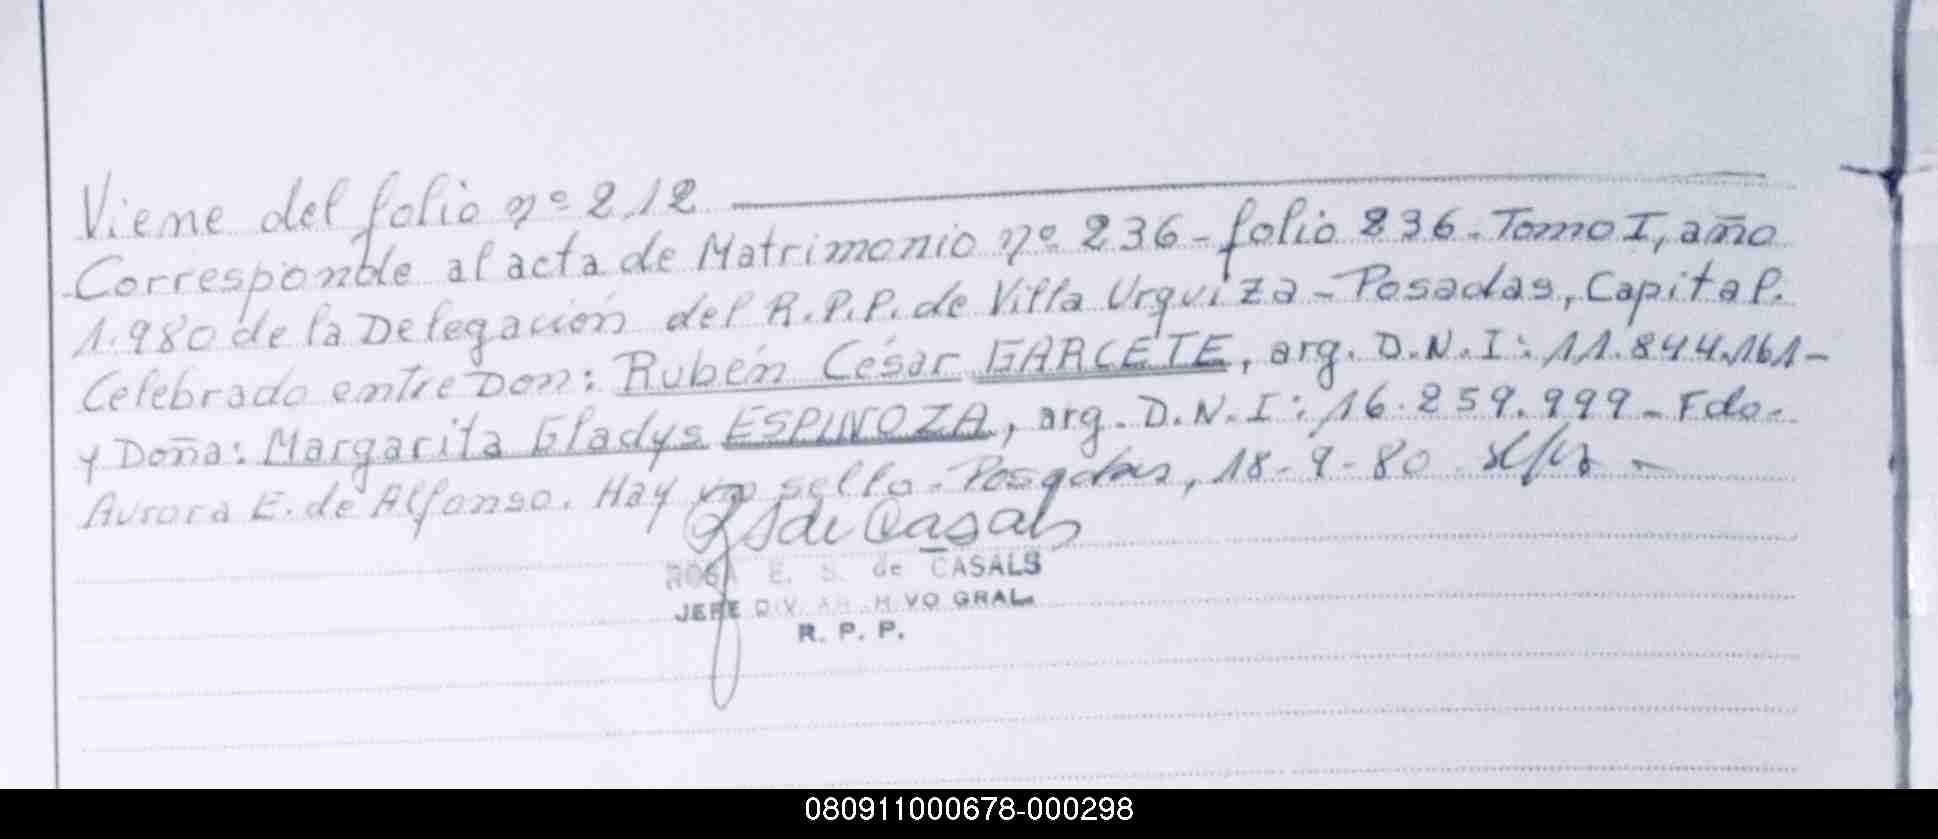 Viene del folio nº 212
Corresponde al acta de Matrimonio nº 236 - folio 236 - Tomo I, año
1.980 de la Delegación del R.P.P. de Villa Urquiza - Posadas, Capital.
Celebrado entre Don: Rubén César GARCETE, arg. D.N.I: 11.844.161-
y Doña: Margarita Gladys ESPINOZA, arg. D.N.I: 16.259.999 - Fdo.
Aurora E. de Alfonso. Hay un sello. Posadas, 18-9-80
de Casals
ROSA E. S. de CASALS
JEFE DIV. ARCHIVO GRAL.
R. P. P.
080911000678-000298